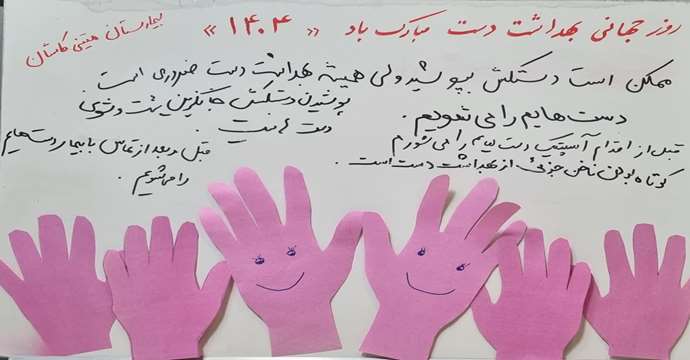 روز جهانی بهداشت دست مبارک باد «۱۴۰۴»
بیمارستان متینی کاشان
ممکن است دستکش بپوشید ولی همیشه بهداشت دست ضروری است
دست‌هایم را می‌شویم.
قبل از اقدام آسپتیک دست‌هایم را می‌شورم
کوتاه بودن ناخن جزئی از بهداشت دست است.
پوشیدن دستکش جایگزین شست و شوی
دست نیست.
قبل و بعد از تماس با بیمار دست‌هایم
را می‌شویم.